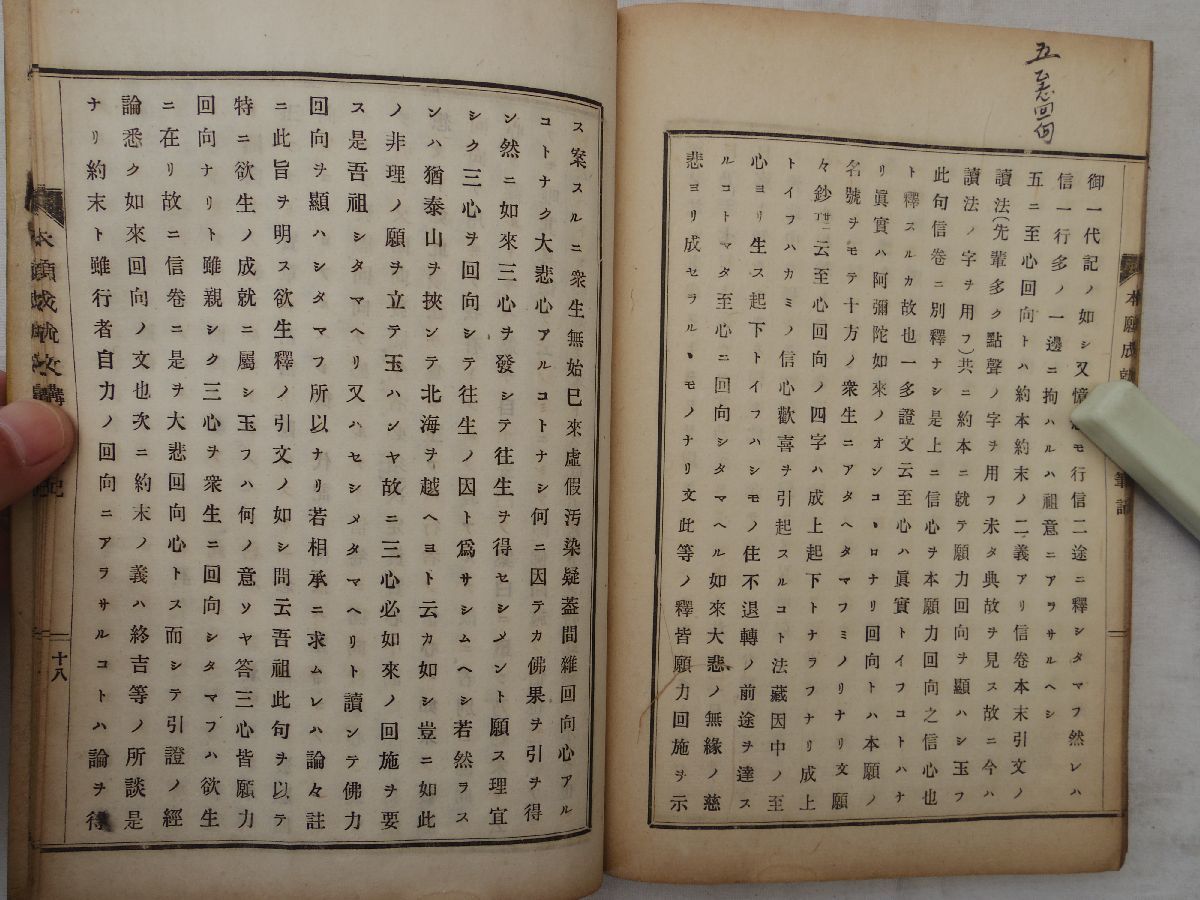 五 至心回向
御一代記ノ如シ又憶モ行信二途ニ釋シタマフ然レハ
信一行多ノ一邊ニ拘ハルハ祖意ニアラサルヘシ
五ニ至心回向トハ約本約末ノ二義アリ信卷本末引文ノ
讀法(先輩多ク點聲ノ字ヲ用フ未タ典故ヲ見ス故ニ今ハ
讀法ノ字ヲ用フ)共ニ約本ニ就テ願力回向ヲ顯ハシ玉フ
此句信卷ニ別釋ナシ是上ニ信心ヲ本願力回向之信心也
ト釋スルカ故也一多證文云至心ハ眞實トイフコトハナ
リ眞實ハ阿彌陀如來ノオンコヽロナリ回向トハ本願ノ
名號ヲモテ十方ノ衆生ニアタヘタマフミノリナリ文願
々鈔云至心回向ノ四字ハ成上起下トナラフナリ成上
トイフハカミノ信心歡喜ヲ引起スルコト法藏因中ノ至
心ヨリ生ス起下トイフハシモノ住不退轉ノ前途ヲ達ス
ルコトマタ至心ニ回向シタマヘル如來大悲ノ無緣ノ慈
悲ヨリ成セラルヽモノナリ文此等ノ釋皆願力回施ヲ示
本願成就
筆記
ス案スルニ衆生無始已來虛假汚染疑蓋間雜回向心アル
コトナク大悲心アルコトナシ何ニ因テカ佛果ヲ引ヲ得
ン然ニ如來三心ヲ發シ自テ往生ヲ得セシメント願ス理宜
シク三心ヲ回向シテ往生ノ因ト爲サシムヘシ若然ラス
ンハ猶泰山ヲ挾ンテ北海ヲ越ヘヨト云カ如シ豈ニ如此
ノ非理ノ願ヲ立テ玉ハンヤ故ニ三心必如來ノ回施ヲ要
ス是吾祖シタマヘリ又ハセシメタマヘリト讀シテ佛力
回向ヲ顯ハシタマフ所以ナリ若相承ニ求ムレハ論々註
ニ此旨ヲ明ス欲生釋ノ引文ノ如シ問云吾祖此句ヲ以テ
特ニ欲生ノ成就ニ屬シ玉フハ何ノ意ソヤ答三心皆願力
回向ナリト雖親シク三心ヲ衆生ニ回向シタマフハ欲生
ニ在リ故ニ信卷ニ是ヲ大悲回向心トス而シテ引證ノ經
論悉ク如來回向ノ文也次ニ約末ノ義ハ終吉等ノ所談是
ナリ約末ト雖行者自力ノ回向ニアラサルコトハ論ヲ待
本願成就文講
記
十八